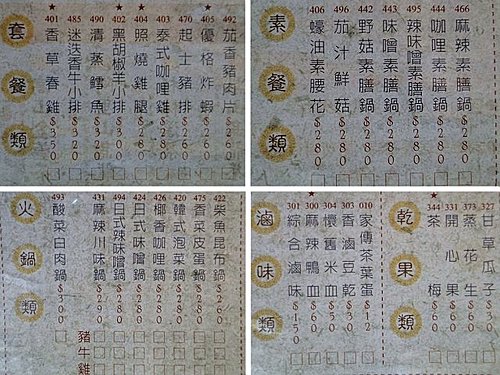 套餐類
401 香草春雞 $350
485 迷迭香牛小排 $320
490 清蒸鱈魚 $320
402 黑胡椒羊小排 $300
404 照燒雞腿 $280
403 泰式咖哩雞
470 起士豬排 $260
405 優格炸蝦 $260
492 茄香豬肉片 $260
素餐類
406 蠔油素腰花 $280
496 茄汁鮮菇 $280
442 野菇素膳鍋 $280
443 味噌素膳鍋 $280
495 辣味噌素膳鍋 $280
444 咖哩素膳鍋 $280
466 麻辣素膳鍋 $280
火鍋類
493 酸菜白肉鍋 $300
431 麻辣川味鍋
494 日式辣味噌鍋 $280
424 日式味噌鍋
426 椰香咖哩鍋 $280
420 韓式泡菜鍋
475 香菜皮蛋鍋
422 柴魚昆布鍋
豬
牛
雞
滷味類
301 綜合滷味 $150
300 麻辣鴨血
304 懷舊米血
303 香滷豆乾 $30
010 家傳茶葉蛋 $12
乾果類
337 茶梅 $60
331 開心果 $60
373 蒸花生
327 甘草瓜子 $60